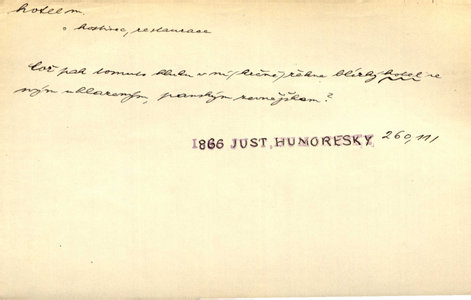 hotel m.
○ hostinec, restaurace
Což pak tomuto hluku v ní (krčmě) řekne blízký hotel se
svým uhlazeným, panským zevnějškem?
1866 JUST, HUMORESKY 260, 111